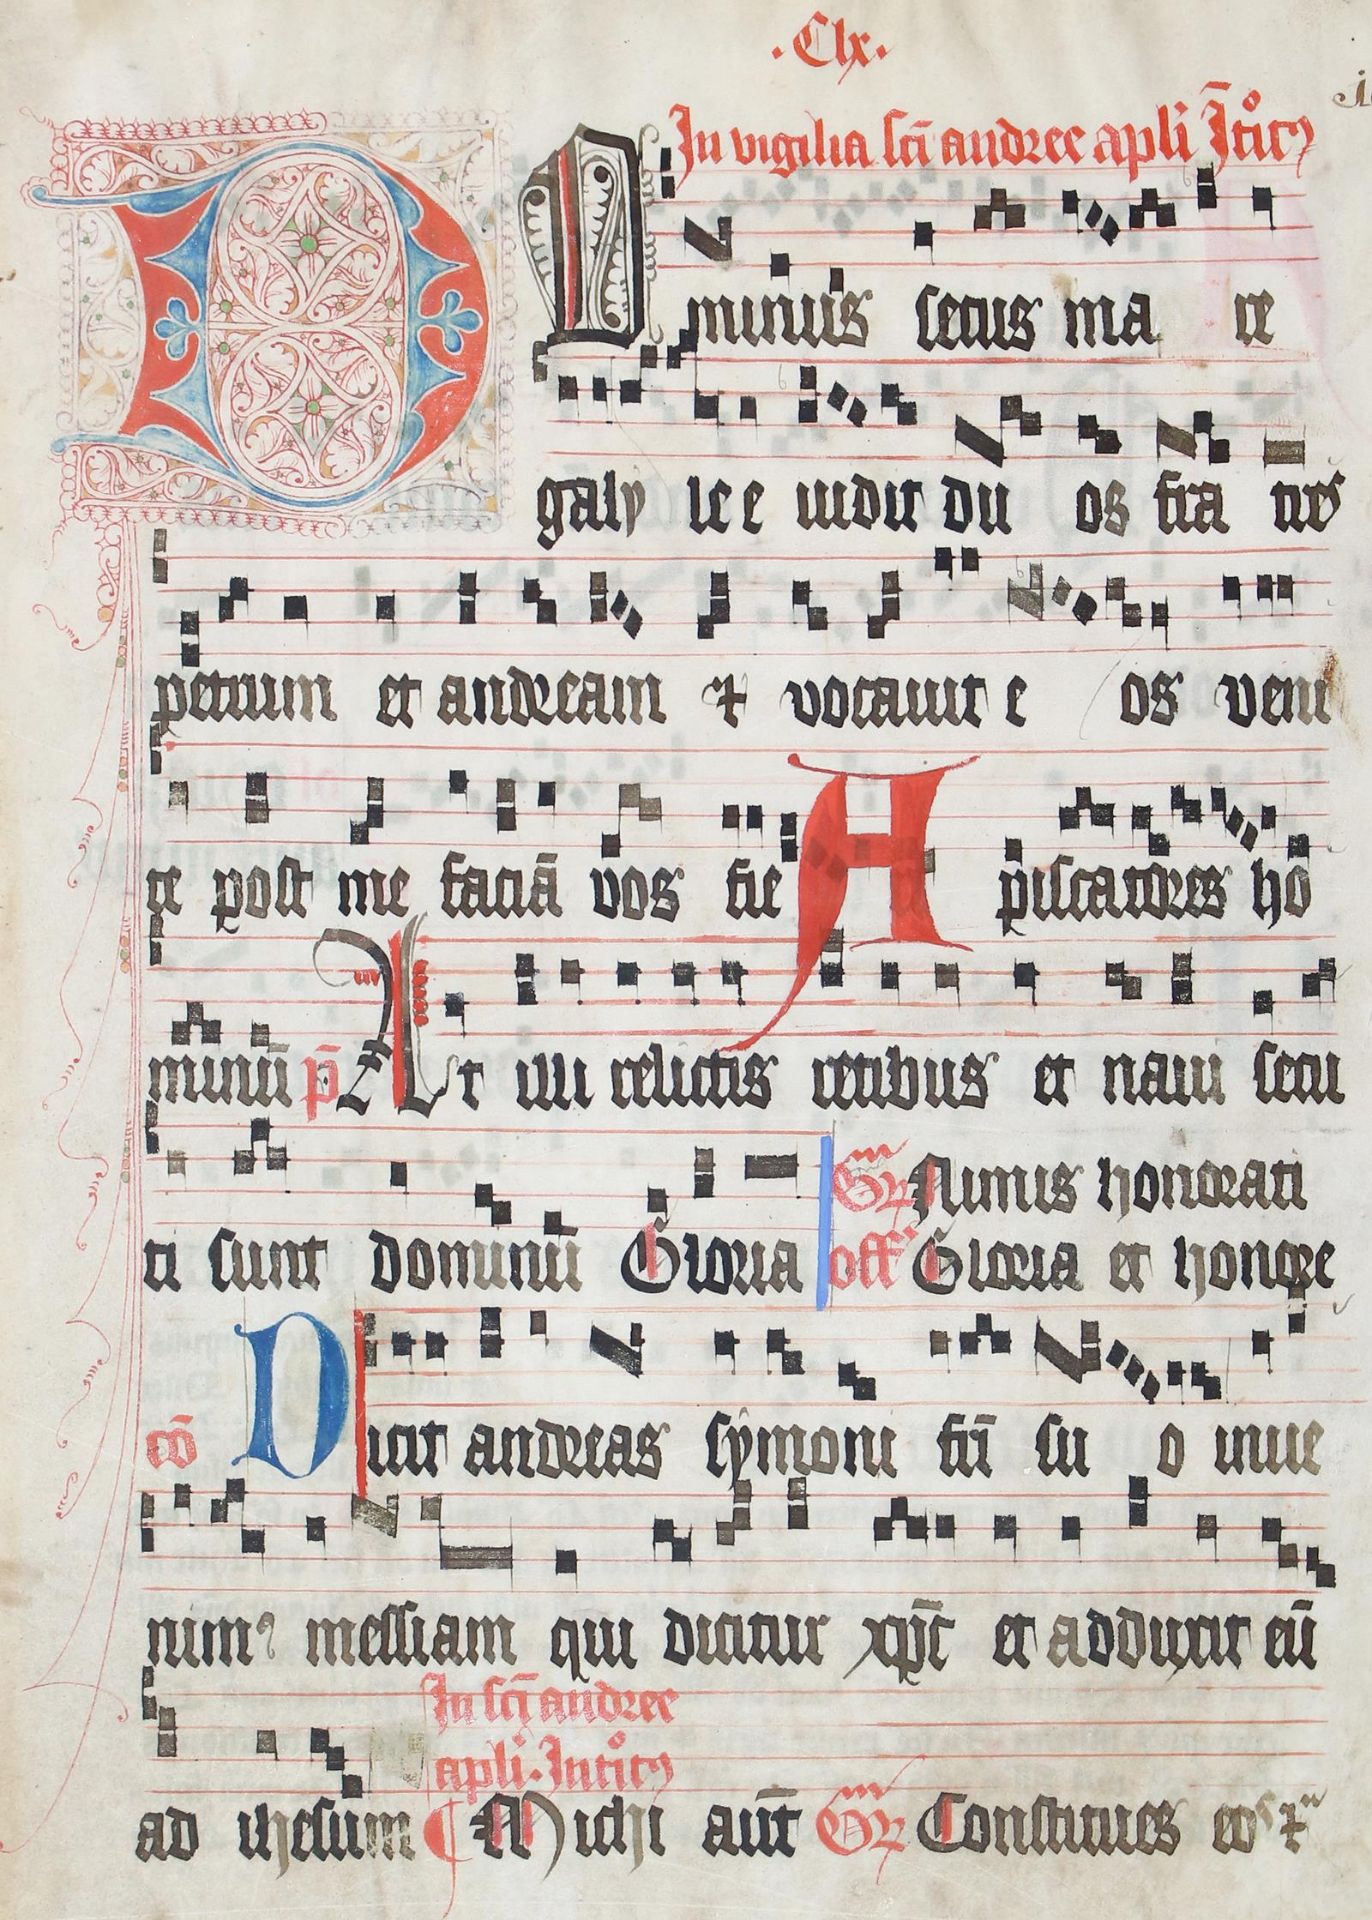 ·Clx·
In vigilia scī andree apli Itit9
DOminus secus ma re
galy lee uidit du os fra tres
petrum et andream ⁊ vocauit e os veni
te post me faciā vos fie A piscatores ho
minū p̄s At illi relictis retibus et naui secu
ti sunt dominū Gloria Gr̄ Nimis honorati
off Gloria et honore
cō Dicit andreas symoni frī su o inue
nim9 messiam qui dicitur xp̄c et adduxit eū
In scī andree
apli·Intit9
ad ihesum Michi aūt Gr̄ Constitues eos ⁊